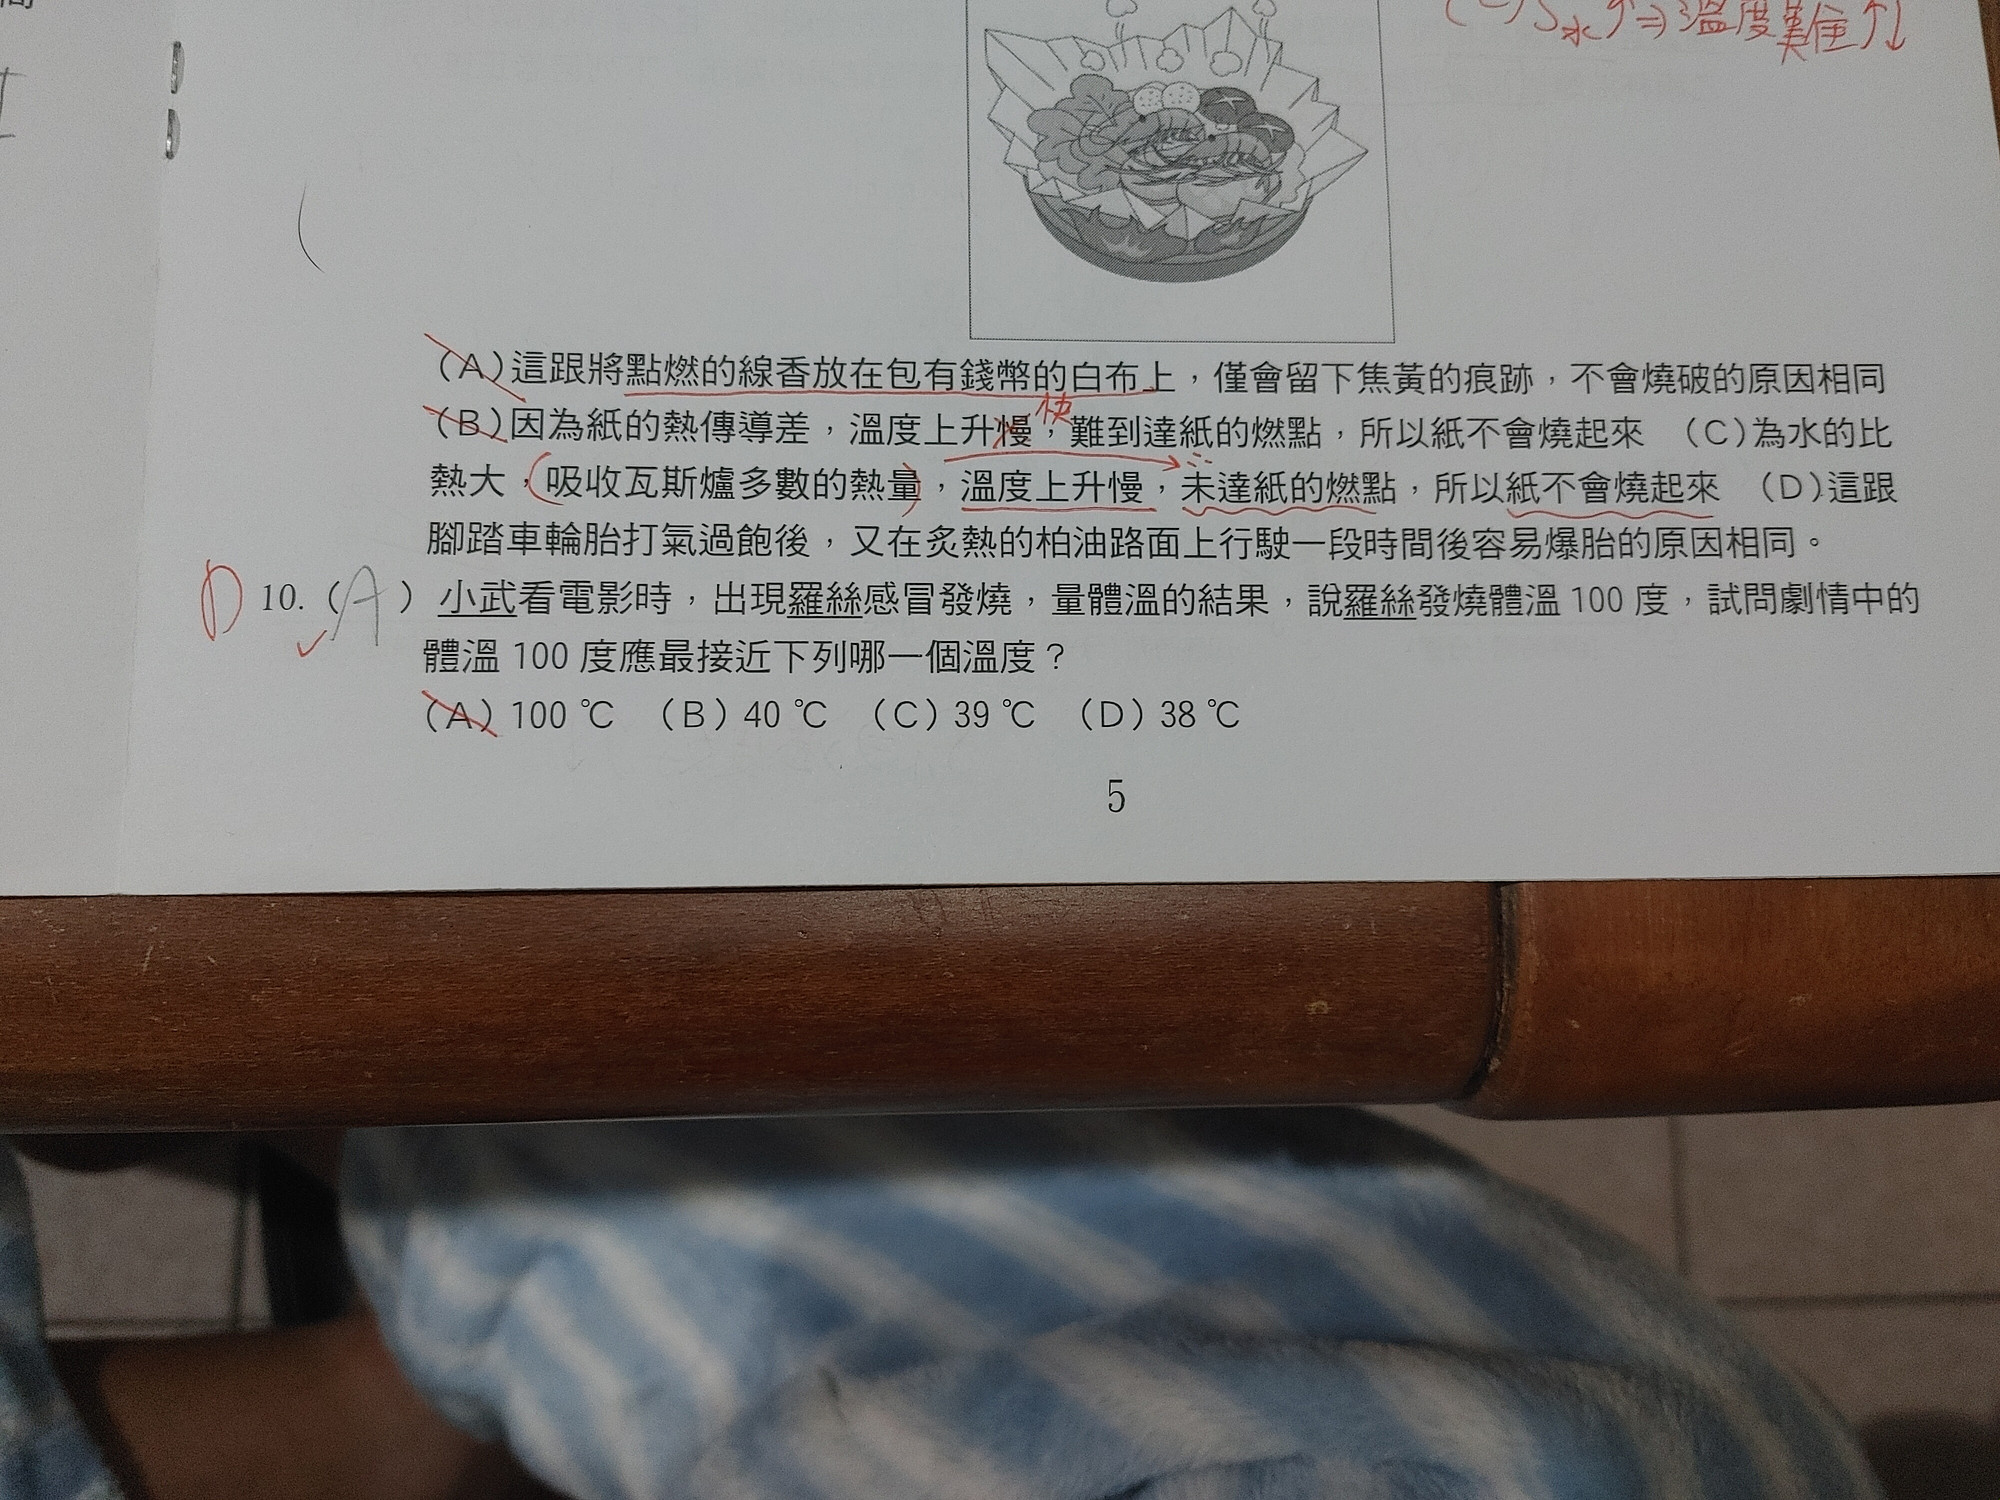 S水↑⇒溫度難↑↓
(A)這跟將點燃的線香放在包有錢幣的白布上，僅會留下焦黃的痕跡，不會燒破的原因相同
快
(B)因為紙的熱傳導差，溫度上升慢，難到達紙的燃點，所以紙不會燒起來 (C)為水的比
熱大，(吸收瓦斯爐多數的熱量)，溫度上升慢，未達紙的燃點，所以紙不會燒起來 (D)這跟
腳踏車輪胎打氣過飽後，又在炙熱的柏油路面上行駛一段時間後容易爆胎的原因相同。
D 10.（A）小武看電影時，出現羅絲感冒發燒，量體溫的結果，說羅絲發燒體溫 100 度，試問劇情中的
體溫 100 度應最接近下列哪一個溫度？
(A) 100 ℃ (B) 40 ℃ (C) 39 ℃ (D) 38 ℃
5